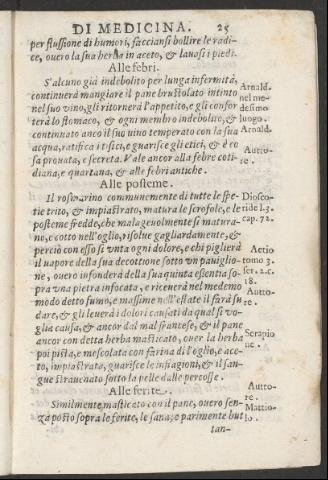 DI MEDICINA. 25
per flussione di humori, facciansi bollire le radi-
ce, ouero la sua herba in aceto, & lauasi i piedi.
Alle febri.
S'alcuno già indebolito per lunga infermità,
continuerà mangiare il pane brustolato intinto
nel suo vino, gli ritornerà l'appetito, e gli confor
terà lo stomaco, & ogni membro indebolito, &
continuato anco il suo uino temperato con la sua
acqua, ratifica i tisici, e guarisce gli etici, & è co
sa prouata, e secreta. Vale ancor alla febre coti-
diana, e quartana, & alle febri antiche.
Arnald.
nel me-
desimo
luogo.
Arnald.
Autto-
re.
Alle posteme.
Il rosmarino communemente di tutte le spe-
tie trito, & impiastrato, matura le scrofole, e le
posteme fredde, che malageuolmente si matura-
no, e cotto nell'oglio, risolue gagliardamente, &
perciò con esso si vnta ogni dolore, e chi piglierà
il uapore della sua decottione sotto vn pauiglio-
ne, ouero infonderà della sua quinta essentia so-
pra vna pietra infocata, e riceuerà nel medemo
modo detto fumo, e massime nell'estate il farà su
dare, & gli leuerà i dolori causati da qual si vo-
glia causa, & ancor dal mal francese, & il pane
ancor con detta herba masticato, ouer la herba
poi pista, e mescolata con farina di l'oglio, e ace-
to, impiastrata, guarisce le infiagioni, & il san-
gue strauenato sotto la pelle dalle percosse.
Diosco-
ride l.3.
cap. 72.
Aetio
tomo 3.
ser. 2. c.
18.
Autto-
re.
Serapio
ne.
Alle ferite.
Similmente masticato con il pane, ouero sen-
za posto sopra le ferite, le sana, e parimente but
tan-
Autto-
re.
Mattio-
lo.